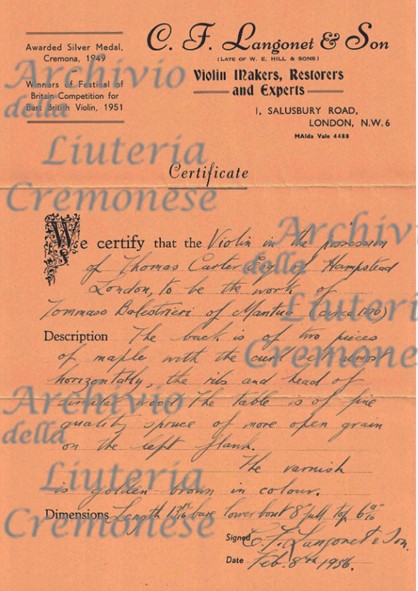 C. F. Langonet & Son
(LATE OF W. E. HILL & SONS)
Violin Makers, Restorers
and Experts
Awarded Silver Medal,
Cremona, 1949
Winners of Festival of
Britain Competition for
Best British Violin, 1951
1, SALUSBURY ROAD,
LONDON, N.W.6
MAIda Vale 4488
Certificate
We certify that the Violin in the possession
of Thomas Carter Hampstead
London, to be the work of
Tommaso Balestrieri of Mantua (circa
Description The back is of two pieces
of maple with the curl almost
horizontally, the ribs and head of
similar wood. The table is of fine
quality spruce of more open grain
on the left flank.
The varnish
is golden brown in colour.
Dimensions Length lower bout 8 full, top
Signed C. F. Langonet & Son.
Date Feb. 8th 1956.
Archivio
della
Liuteria
Cremonese
Archivio
della
Liuteria
Cremonese
Archivio
della
Liuteria
Cremonese